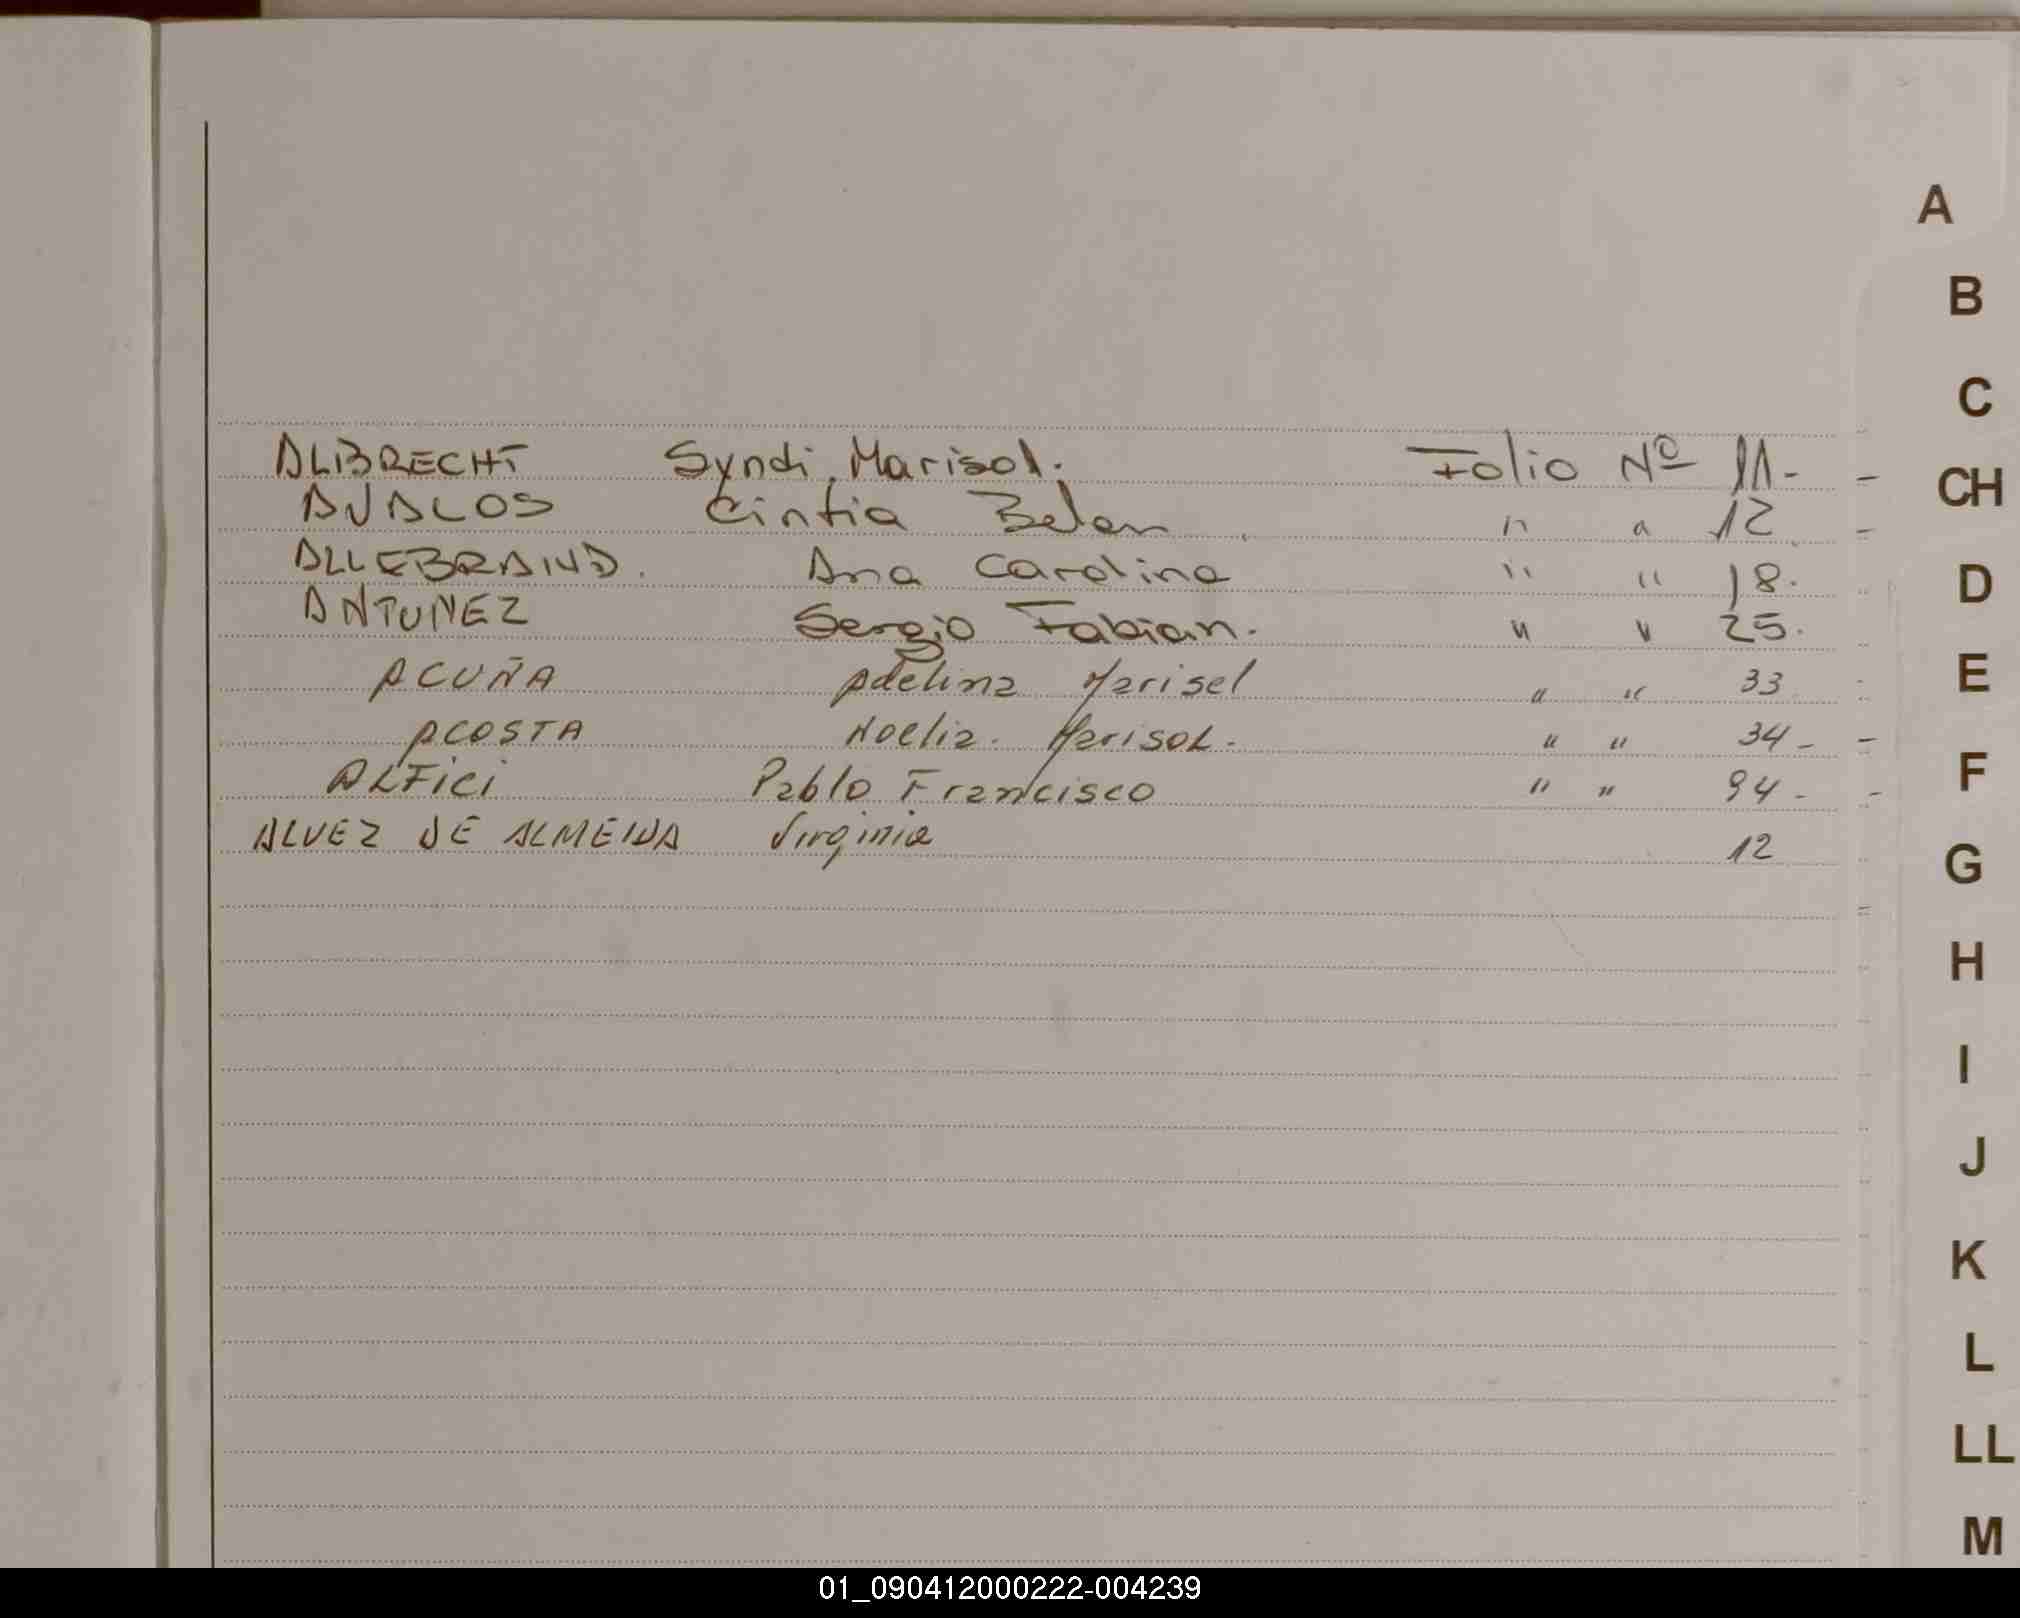 ALBRECHT Syndi Marisol. Folio Nº 11-
AVALOS Cintia Belen " " 12
ALLEBRAND. Ana Carolina " " 18.
ANTUNEZ Sergio Fabian. " " 25.
ACUÑA Adelina Marisel " " 33
ACOSTA Noelia. Marisol. " " 34-
ALFICI Pablo Francisco " " 94-
ALVEZ DE ALMEIDA Virginia 12
A
B
C
CH
D
E
F
G
H
I
J
K
L
LL
M
01_090412000222-004239